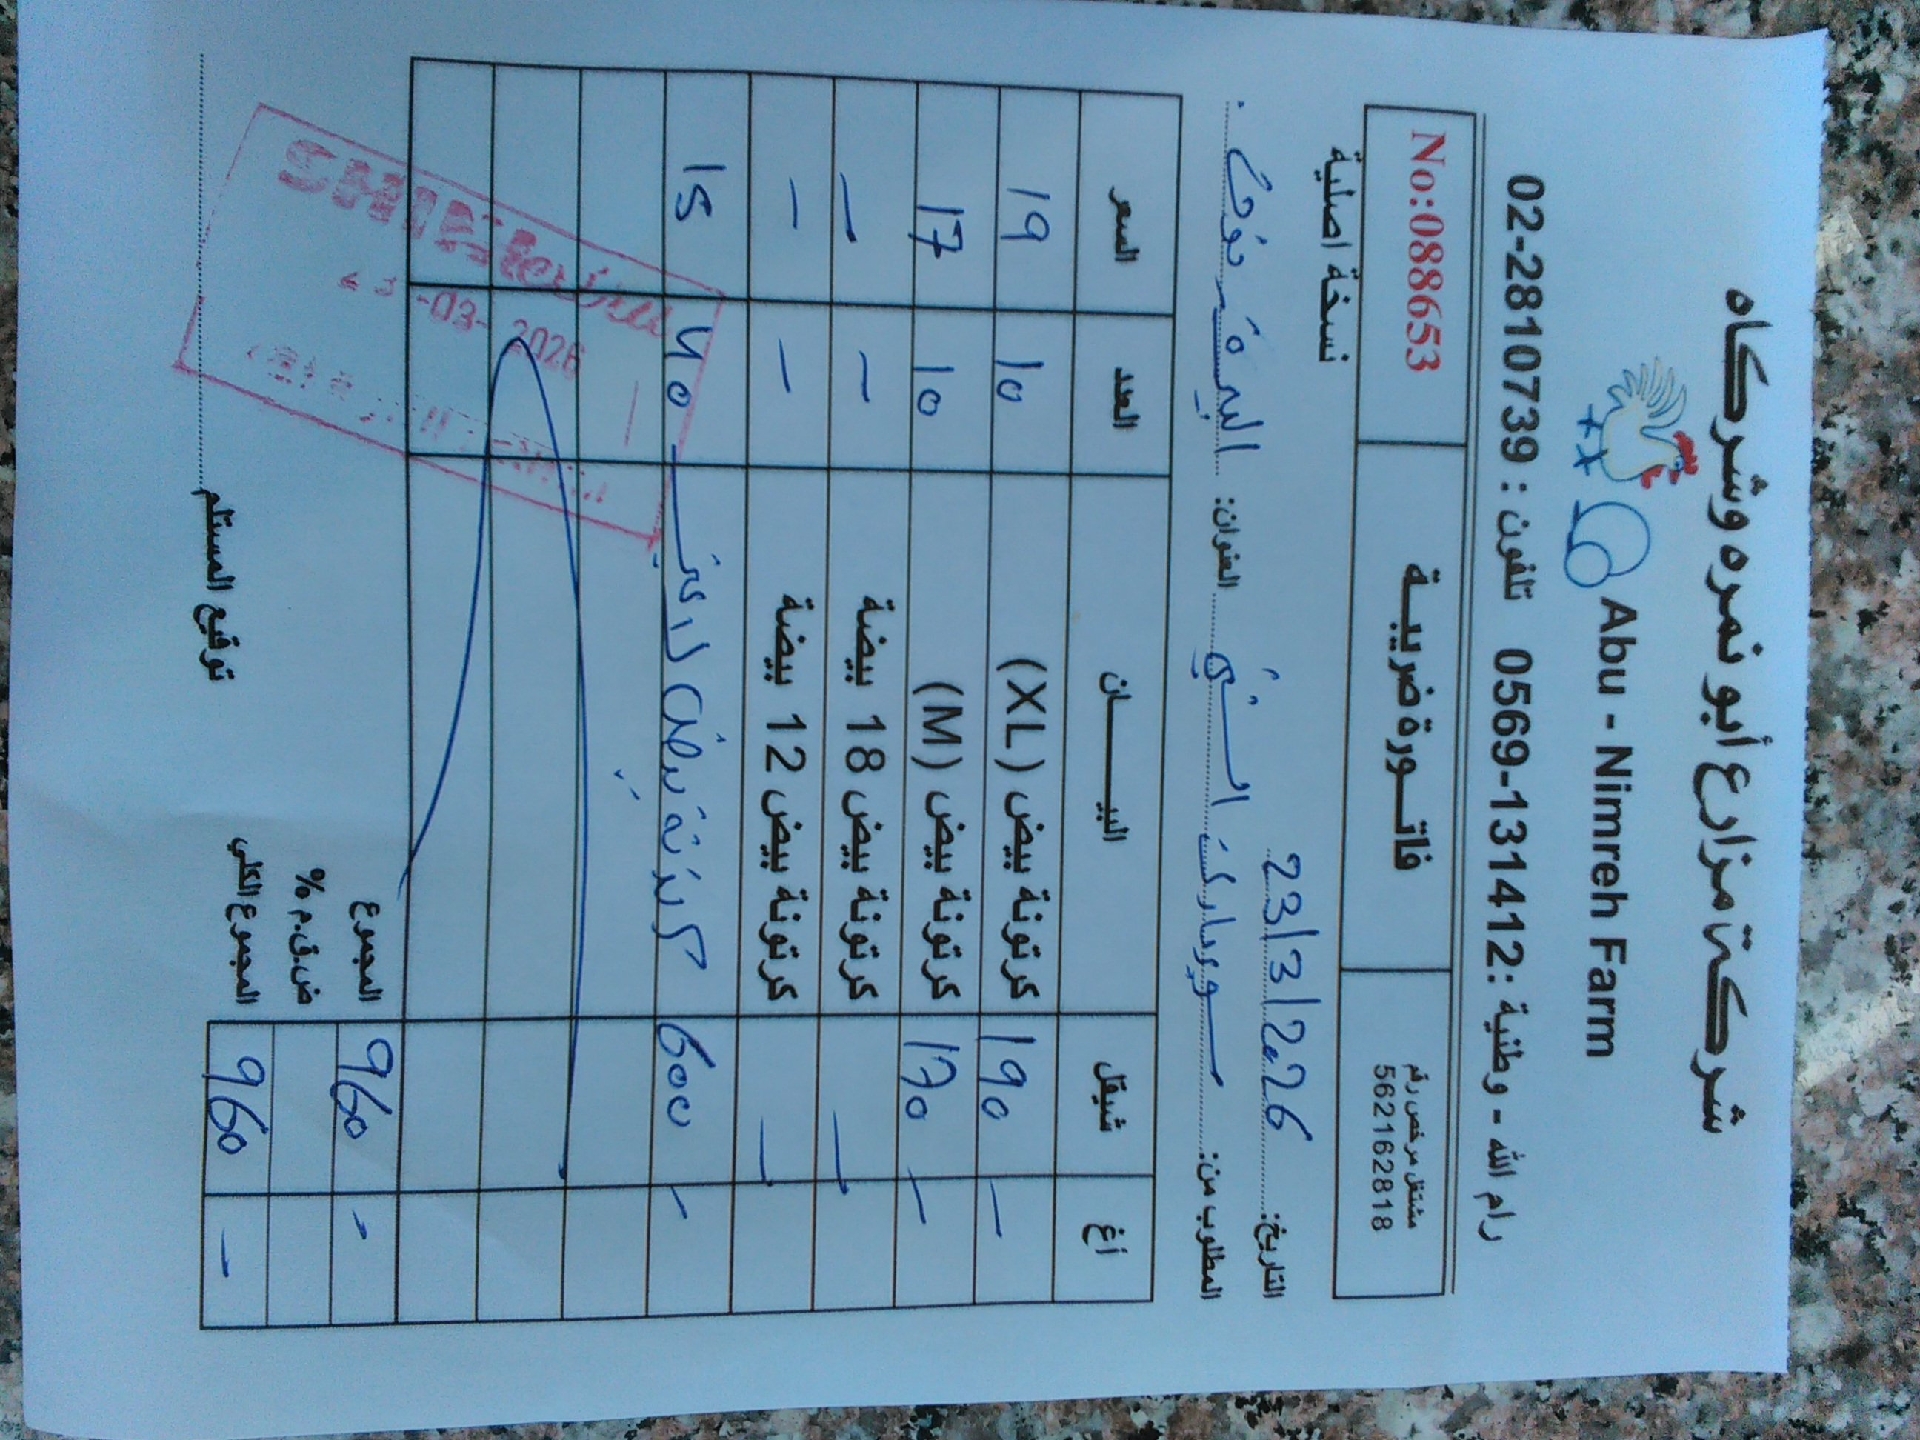 شركة مزارع أبو نمره وشركاه
Abu - Nimreh Farm
رام الله - وطنية : 0569-131412 تلفون : 02-2810739
مشتغل مرخص رقم
562162818
فاتـــورة ضريبيـــة
No:088653
نسخة اصلية
التاريخ: 23/3/2026
المطلوب من: سوبرماركت العنوان: البيرة
أغ شيقل البيـــــــان العدد السعر
- 190 كرتونة بيض (XL) 10 19
- 170 كرتونة بيض (M) 10 17
- كرتونة بيض 18 بيضة - -
- كرتونة بيض 12 بيضة - -
- 600 كرتونة بيض 40 15
المجموع 960 -
ض.ق.م %
المجموع الكلي 960 -
توقيع المستلم
SHINI
-03-2026